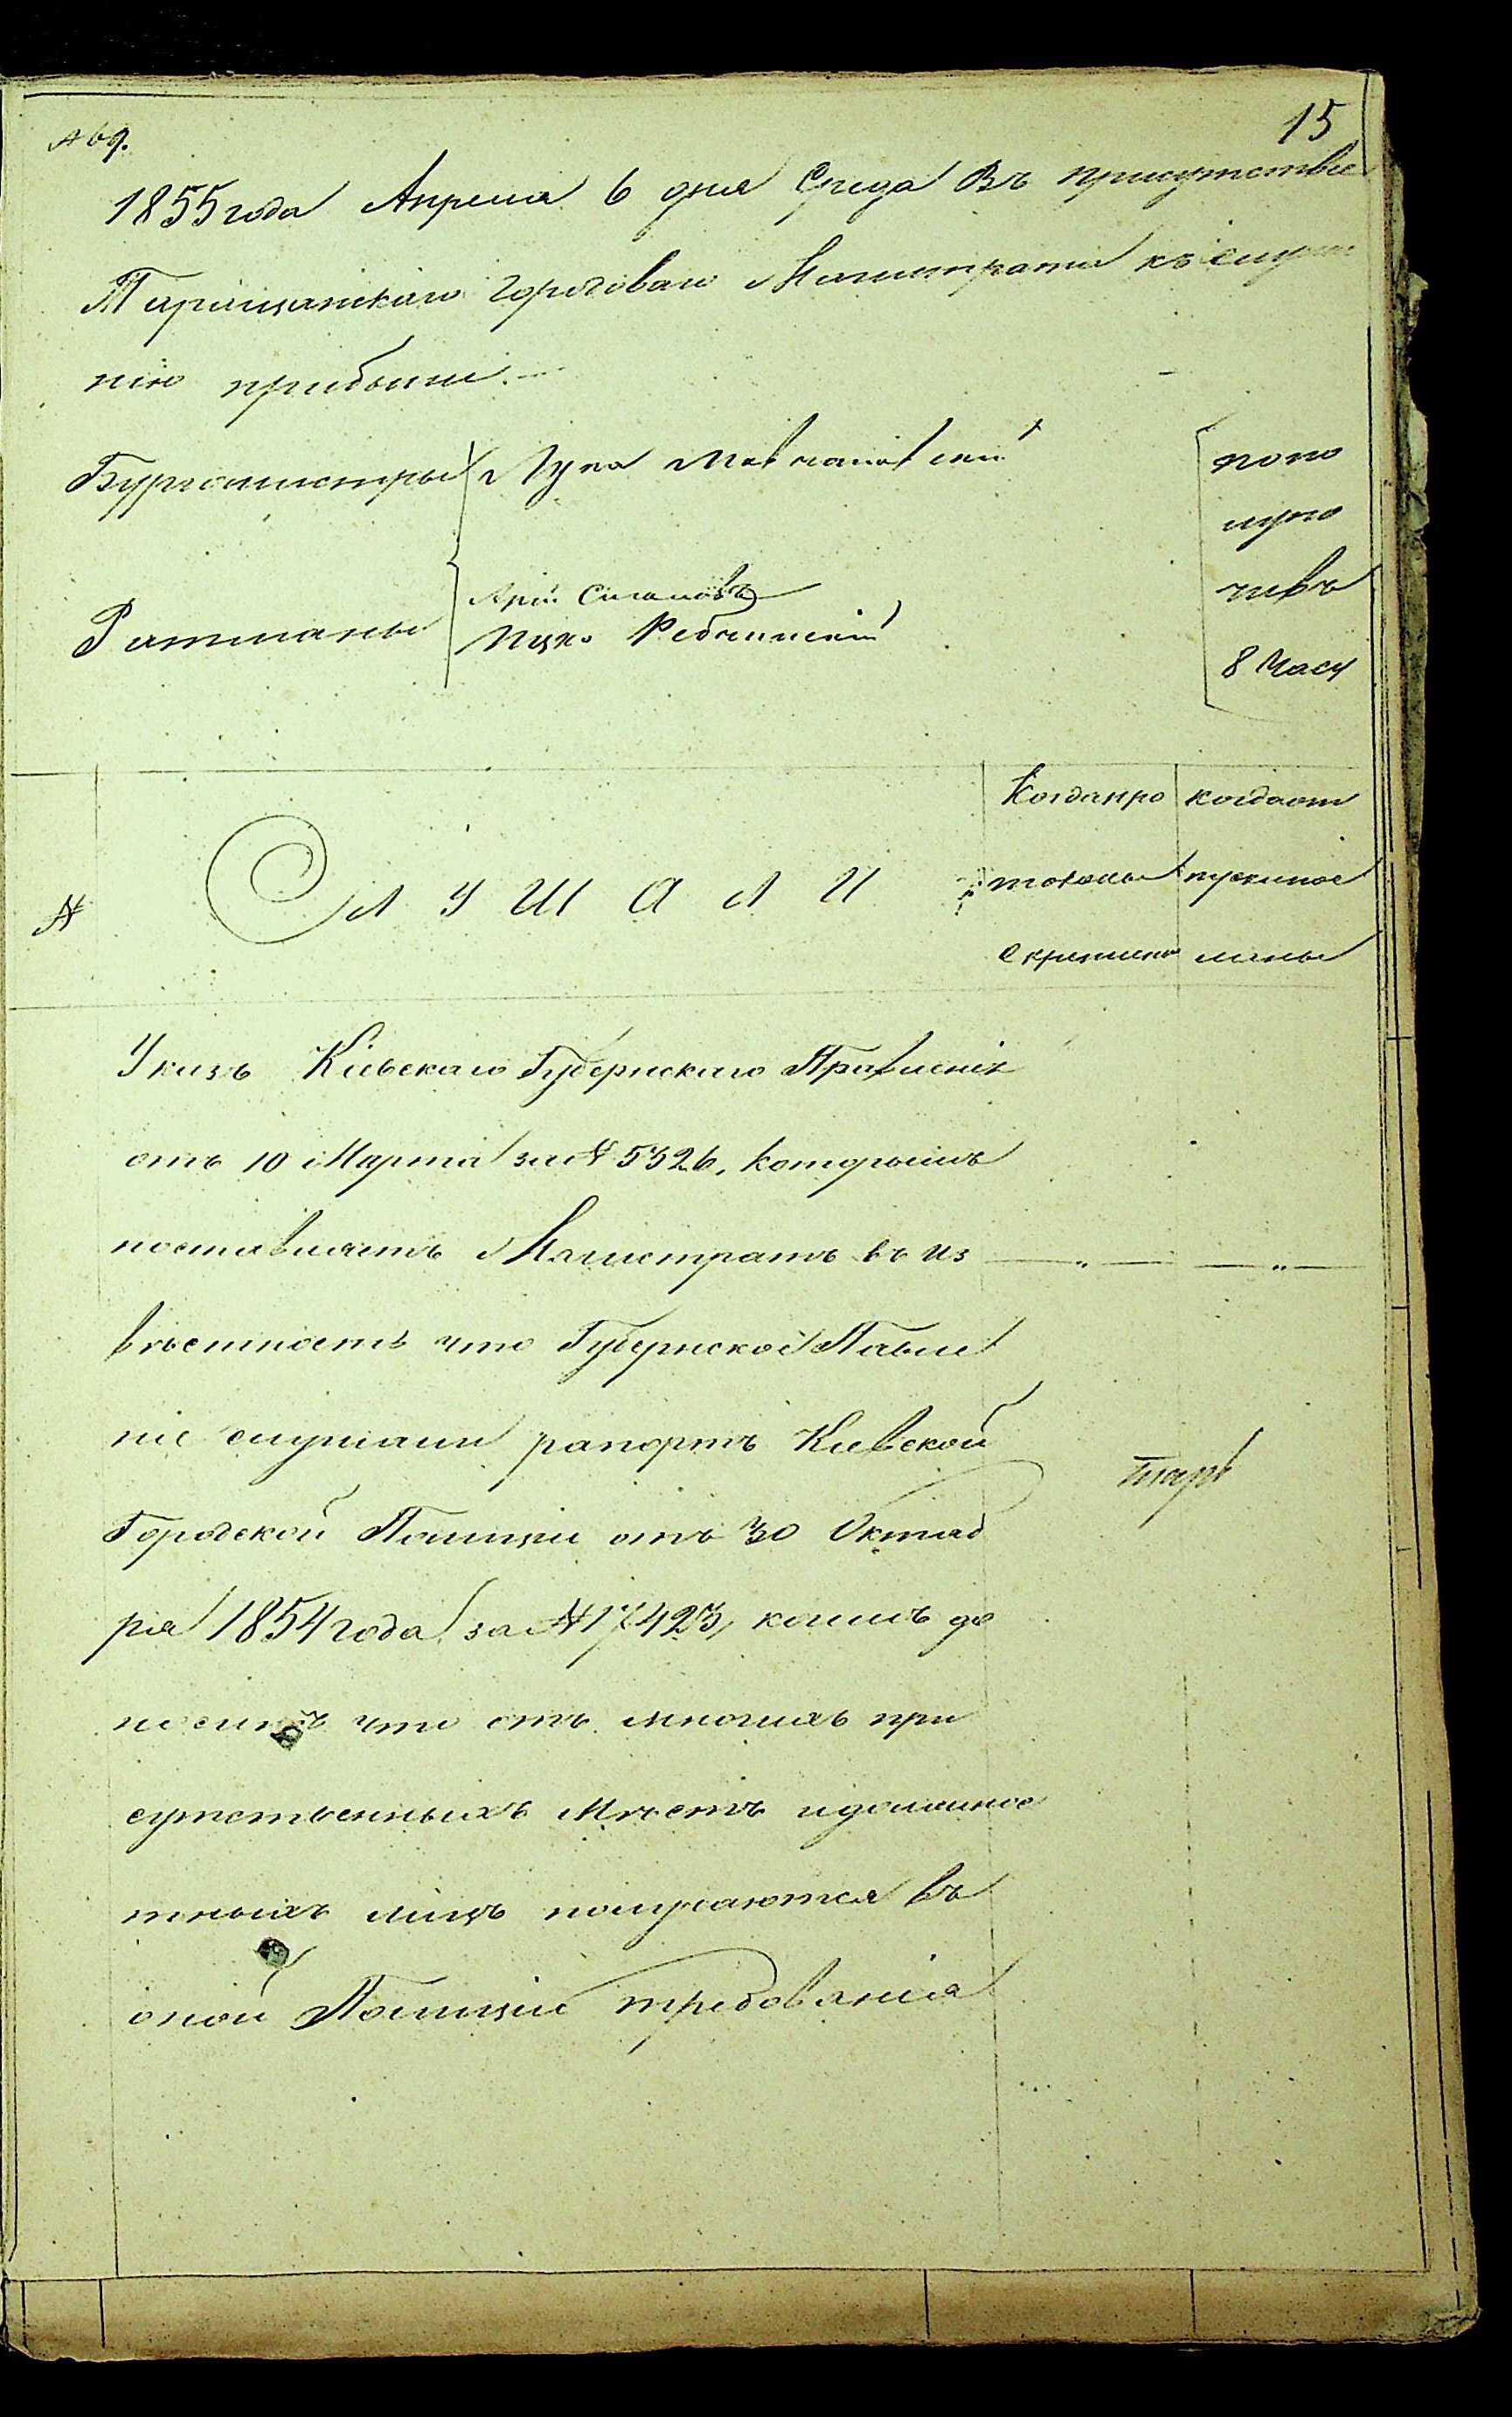 15
№ 69.
1855 года Апреля 6 дня Среда Въ присутствіе
Таращанскаго Городоваго Магистрата къ слуша
нію прибыли.
Бургомистры Лука
по по
лудо
чивъ
Арій
Ратманы Ицко
8 часу
Когда про когда от
№ СЛУШАЛИ: токолы пускипов
Скреплено лины
Указъ Кіевскаго Губернскаго Правленія
отъ 10 Марта за № 5326, которымъ
поставляетъ Магистратъ въ из
вѣстность что Губернское Павле
ніе слушали рапортъ Киевской
Городской Полиціи отъ 30 Октяб
ря 1854 года за № 17423, коимъ до
носитъ что отъ многихъ при
сутственныхъ Мѣстъ и должнос
тныхъ лицъ получаются въ
оной Полиціи требованія